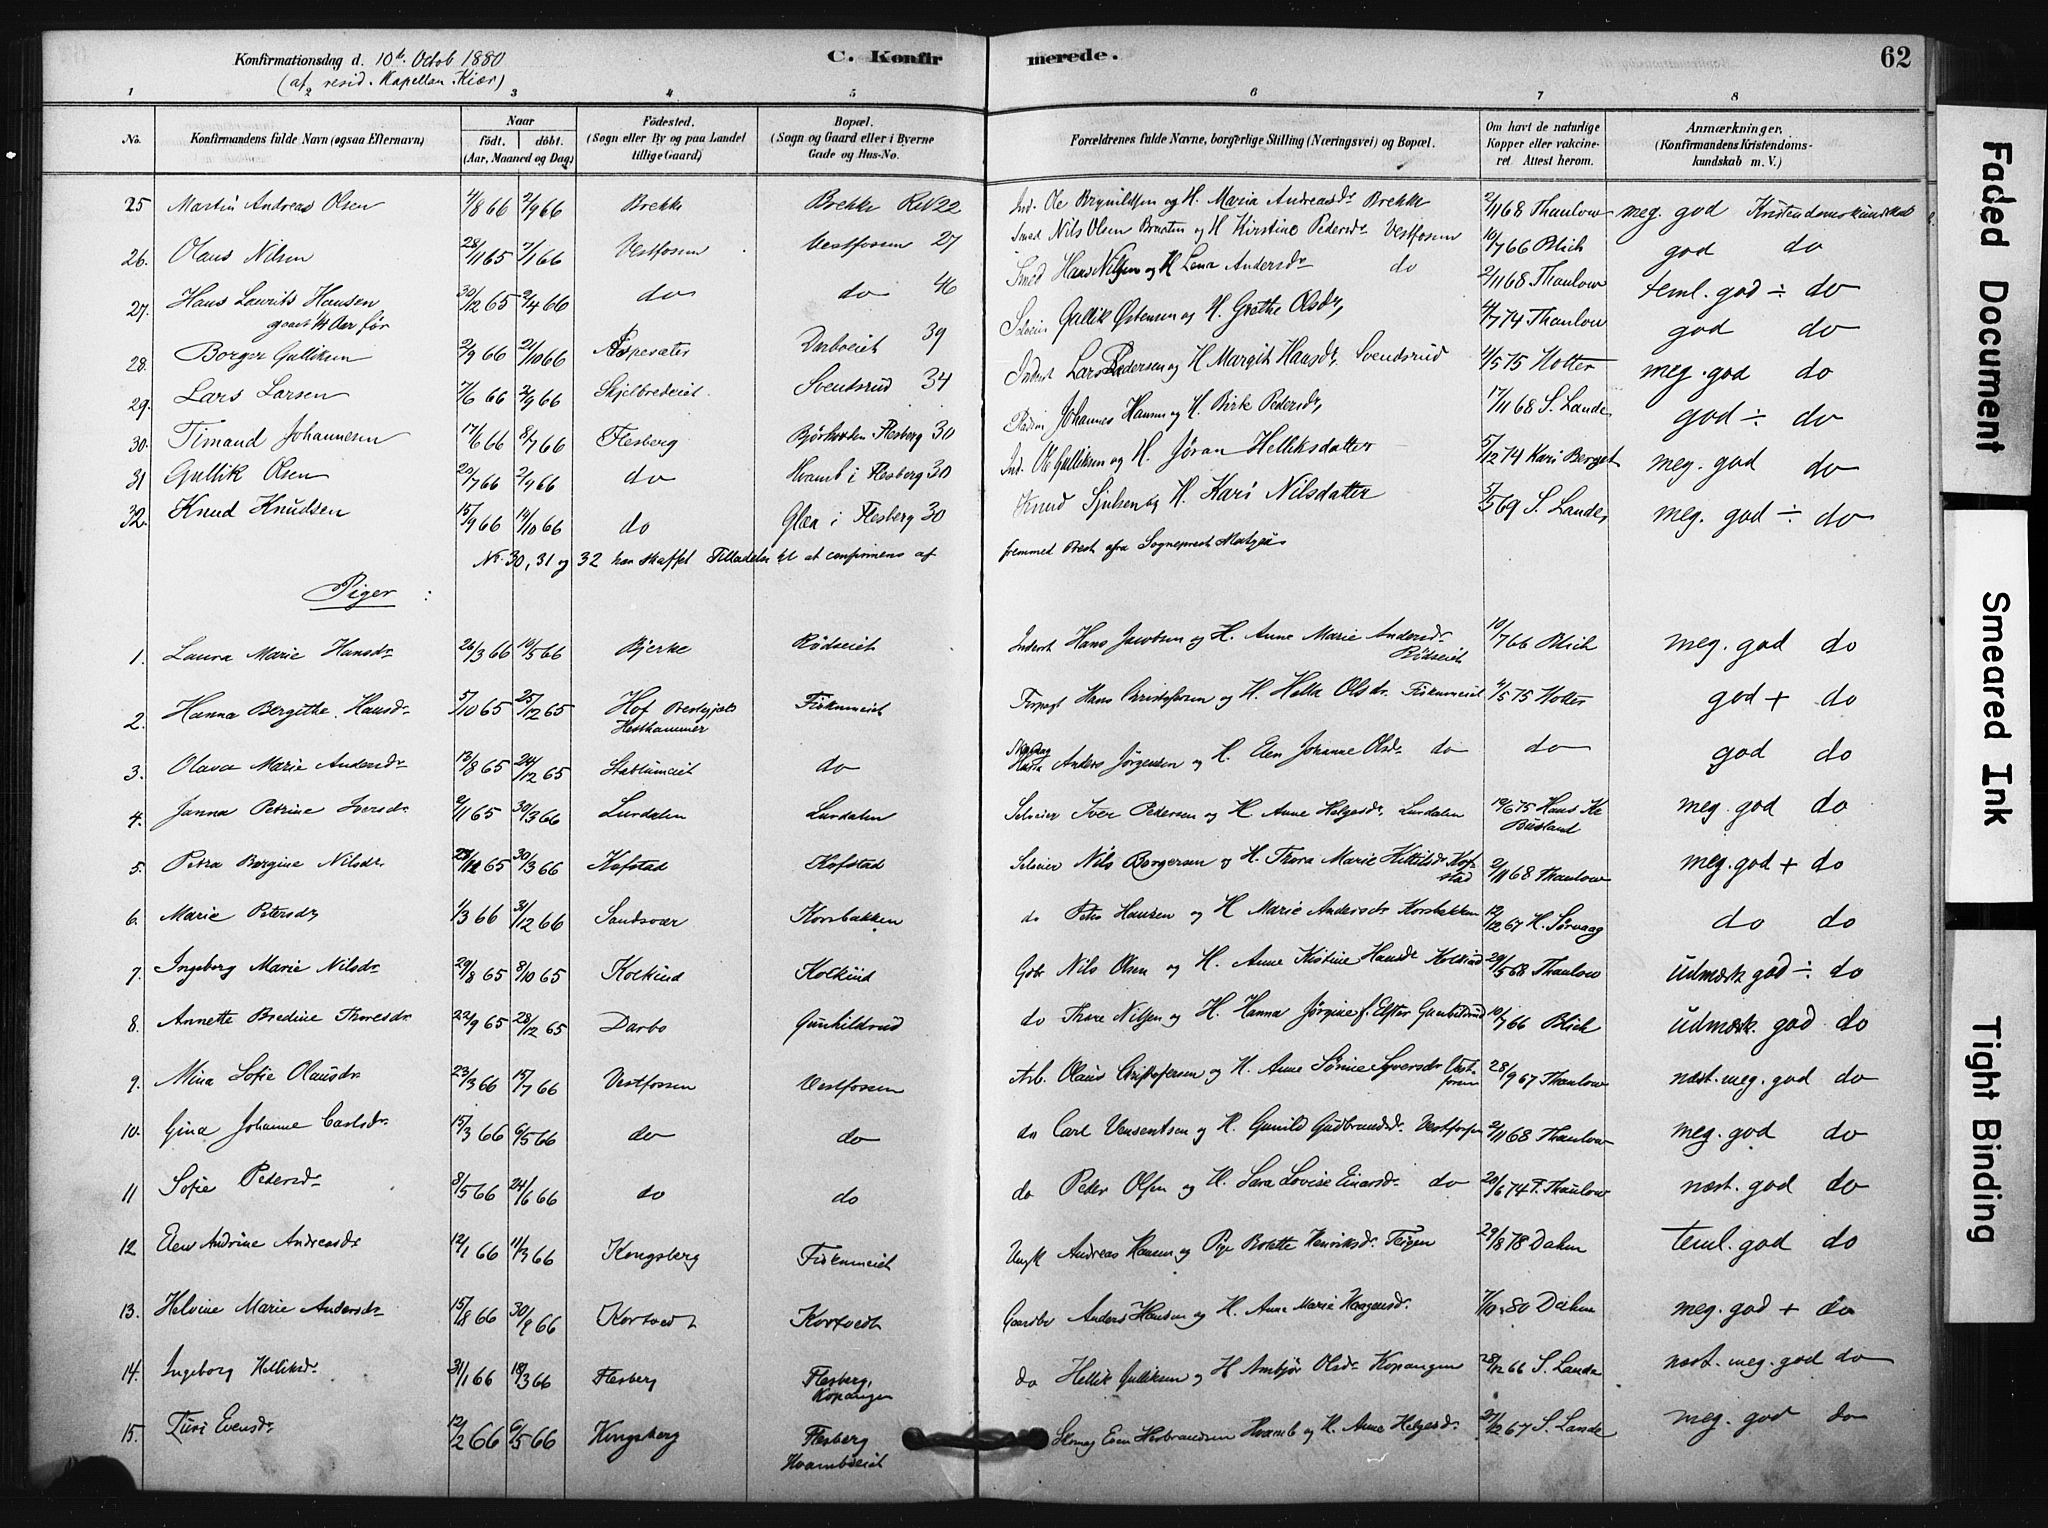 Konfirmationsdag d. 10de Octob 1880
(af resid. Kapellan Kiær)
C. Konfirmerede.
62
1 2 3 4 5 6 7 8
No. Konfirmandens fulde Navn (ogsaa Efternavn) Naar født. døbt. (Aar, Maaned og Dag) Fødested. (Sogn eller By og paa Landet tillige Gaard) Bopæl. (Sogn og Gaard eller i Byerne Gade og Hus-No. Forældrenes fulde Navne, borgerlige Stilling (Næringsvei) og Bopæl. Om havt de naturlige Kopper eller vakcineret. Attest herom. Anmærkninger. (Konfirmandens Kristendomskundskab m. V.)
25 Martin Andreas Olsen 4/8 66 2/9 66 Brekke Brekke RN22 Ind. Ole Brynildsen og H. Maria Andreasdr Brekke 2/11 68 Thaulow meg. god Kristendomskundskab
26. Olaus Nilsen 28/11 65 7/1 66 Vestfossen Vestfossen 27 Smed Nils Olsen og H Kirstine Pedersdr Vestfossen 10/7 66 Blich god do
27. Hans Laurits Hansen 30/12 65 2/4 66 do do 46 Smed Hans Nilsen og H Lena Andersdr do 2/11 68 Thaulow teml. god ÷ do
28. Borger Gulliksen 2/9 66 21/10 66 Aspesæter Darboeiet 39 Selveier Gullik Østensen og H. Grethe Olsdr 4/7 74 Thaulow god do
29. Lars Larsen 7/6 66 2/9 66 Skjelbredeiet Svendsrud 34 Inderst Lars Pedersen og H Margith Hansdr. Svendsrud 4/5 75 Holter meg. god do
30. Timand Johannesen 17/6 66 8/7 66 Flesberg Flesberg 30 Johannes Hansen og H. Birte Pedersdr 17/11 68 S. Lande god ÷ do
31 Gullik Olsen 20/7 66 2/9 66 do Hvamb i Flesberg 30 Ind. Ole Gulliksen og H. Jøran Helliksdatter 5/12 74 Kari Berget meg. god do
32. Knud Knudsen 15/9 66 14/10 66 do Glea i Flesberg 30 Knud og H. Kari Nilsdatter 5/5 69 S. Lande meg. god ÷ do
Nr. 30, 31 og 32 har skaffet Tilladelse til at confirmeres af fremmed Prest fra Sogneprest
Piger :
1. Laura Marie Hansdr 26/3 66 10/5 66 Bjerke Rødseiet Inderst Hans Jacobsen og H. Anne Marie Andersdr Rødseiet 10/7 66 Blich meg. god do
2. Hanna Bergithe Hansdr 5/10 65 25/12 65 Hof Prestegjeld Hesthammer Fiskumeiet Forpagt Hans Christofersen og H. Helle Olsdr. Fiskumeiet 4/5 75 Holter god + do
3. Olava Marie Andersdr 13/8 65 24/12 65 Stablumeiet do Anders Jørgensen og H. Elen Johanne Olsdr do do god do
4. Janna Petrine Iversdr 2/11 65 30/3 66 Lurdalen Lurdalen Selveier Iver Pedersen og H Anne Helgesdr. Lurdalen 19/6 75 Hans Kr Busland meg. god do
5. Petra Bergine Nilsdr 23/12 65 30/3 66 Kofstad Kofstad Selveier Nils Borgersen og H. Thora Marie Kittilsdr Kofstad 2/11 68 Thaulow meg. god + do
6. Marie Petersdr 1/3 66 31/12 66 Sandsvær Korsbakken do Peter Hansen og H Marie Andersdr Korsbakken 12/12 67 H. Sørvaag do do
7. Ingeborg Marie Nilsdr 29/8 65 8/10 65 Kolkind Kolkind Gbr Nils Olsen og H. Anne Kistine Hansdr Kolkind 29/5 68 Thaulow udmærk god ÷ do
8. Annette Bredine Thoresdr 22/9 65 28/12 65 Darbo Gunhildrud do Thore Nilsen og H. Hanna Jørgine f. Elster Gunhildrud 10/7 66 Blich udmærk. god do
9. Mina Sofie Olausdr 23/3 66 15/7 66 Vestfossen Vestfossen Arb. Olaus Christofersen og H. Anne Sørine Syversdr Vestfossen 28/9 67 Thaulow næst. meg. god do
10. Gina Johanne Carlsdr. 15/3 66 6/5 66 do do do Carl Vensentsen og H. Gunild Gudbrandsdr. Vestfossen 2/11 68 Thaulow meg. god do
11 Sofie Pedersdr 8/5 66 24/6 66 do do do Peder Olsen og H. Sara Lovise Einarsdr do 20/6 74 F. Thaulow næst. god do
12 Elen Andrine Andreasdr 12/1 66 11/3 66 Kongsberg Fiskumeiet Ungk Andreas Hansen og Pige Bolette Henriksdr. Teigen 29/8 78 Dahm teml. god do
13. Helvine Marie Andersdr 15/8 66 30/9 66 Kortvedt Kortvedt Gaardbr Anders Hansen og H. Anne Marie Haagensdr. 7/10 80 Dahm meg. god + do
14. Ingeborg Helliksdr 31/1 66 18/3 66 Flesberg Flesberg, Kopangen do Hellik Gulliksen og H Ambjør Olsdr Kopangen 28/12 66 S. Lande næst. meg. god do
15. Turi Evensdr 12/2 66 6/5 66 Kongsberg Flesberg Hvambseiet Skomag Even Hesbrandsen Hvamb og H. Anne Helgesdr. 27/12 67 S. Lande meg. god do
Faded Document
Smeared Ink
Tight Binding